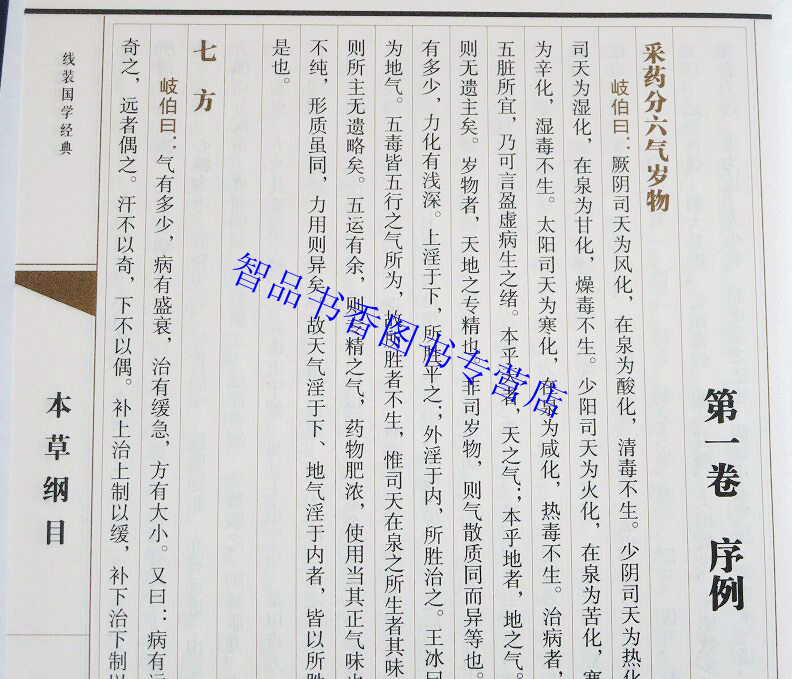 第一卷 序例
采药分六气岁物
岐伯曰：厥阴司天为风化，在泉为酸化，清毒不生。少阴司天为热化
司天为湿化，在泉为甘化，燥毒不生。少阳司天为火化，在泉为苦化，寒
为辛化，湿毒不生。太阳司天为寒化，在泉为咸化，热毒不生。治病者，
五脏所宜，乃可言盈虚病生之绪。本乎天者，天之气；本乎地者，地之气。
则无遗主矣。岁物者，天地之专精也。非司岁物，则气散质同而异等也。
有多少，力化有浅深。上淫于下，所胜平之；外淫于内，所胜治之。王冰曰
为地气。五毒皆五行之气所为，故所胜者不生，惟司天在泉之所生者其味
则所主无遗略矣。五运有余，则专精之气，药物肥浓，使用当其正气味也
不纯，形质虽同，力用则异矣。故天气淫于下、地气淫于内者，皆以所胜
是也。
七方
岐伯曰：气有多少，病有盛衰，治有缓急，方有大小。又曰：病有远
奇之，远者偶之。汗不以奇，下不以偶。补上治上制以缓，补下治下制以
线装国学经典
本草纲目
智品书香图书专营店